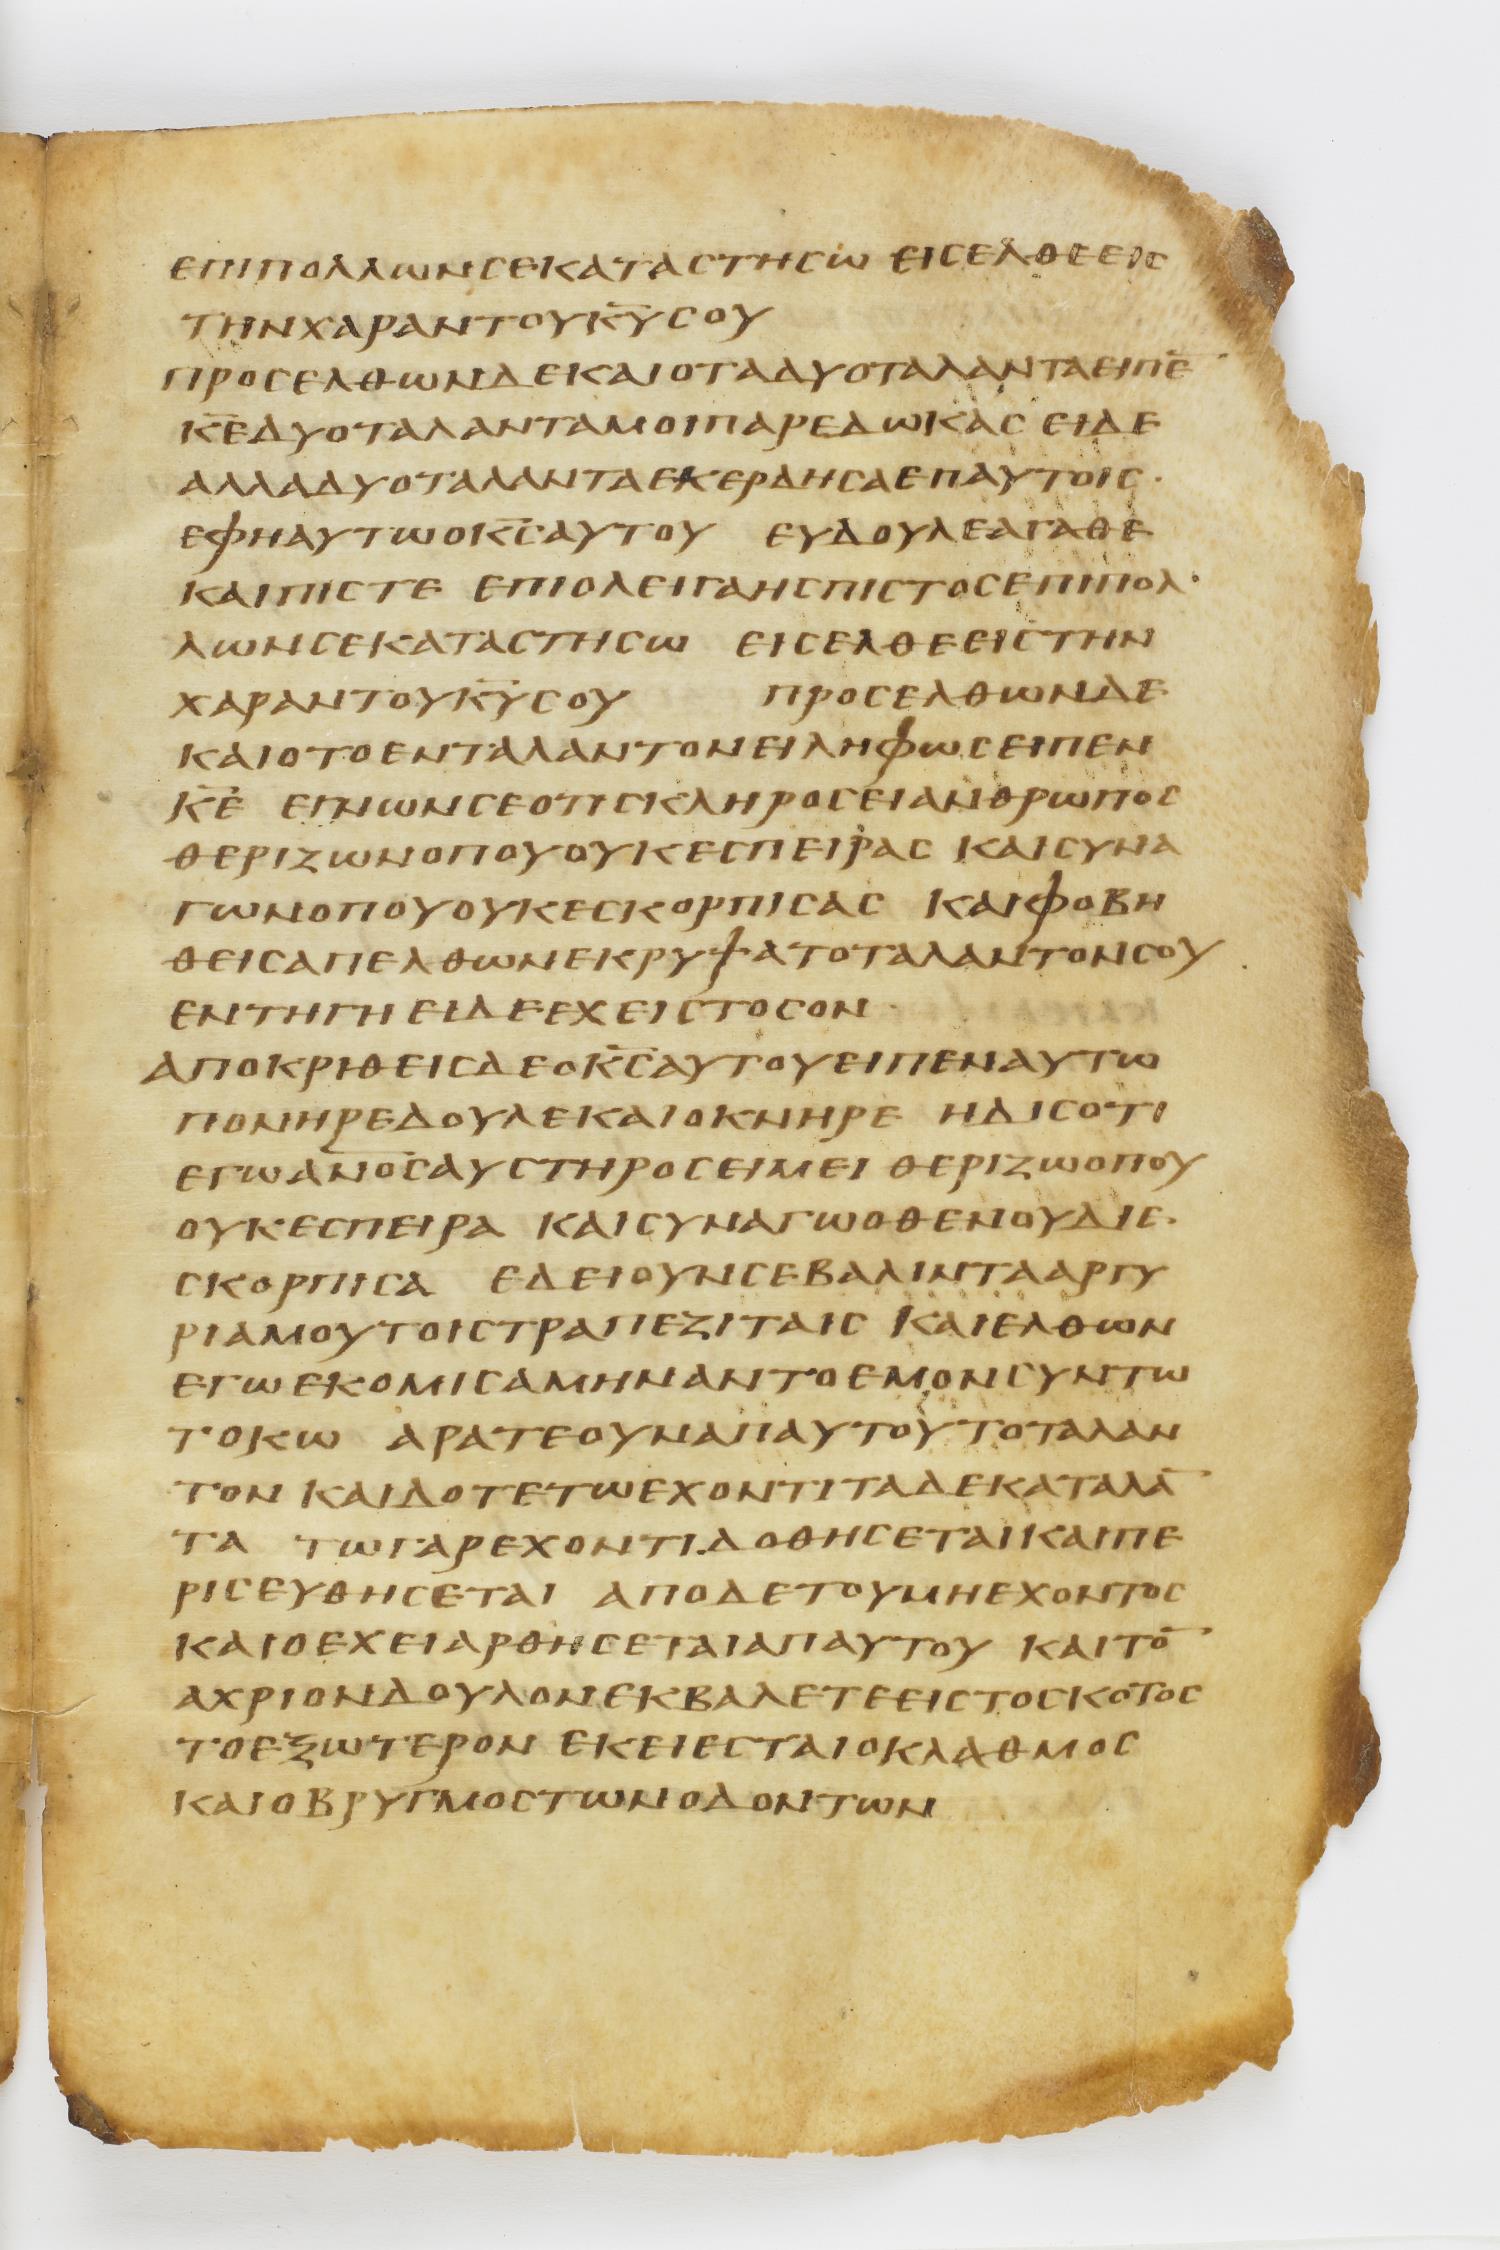 ΕΠΙΠΟΛΛΩΝΣΕΚΑΤΑΣΤΗΣΩ ΕΙΣΕΛΘΕΕΙΣ
ΤΗΝΧΑΡΑΝΤΟΥΚ̅Υ̅ΣΟΥ
ΠΡΟΣΕΛΘΩΝΔΕΚΑΙΟΤΑΔΥΟΤΑΛΑΝΤΑΕΙΠΕ̅
Κ̅Ε̅ΔΥΟΤΑΛΑΝΤΑΜΟΙΠΑΡΕΔΩΚΑΣ ΕΙΔΕ
ΑΛΛΑΔΥΟΤΑΛΑΝΤΑΕΚΕΡΔΗΣΑΕΠΑΥΤΟΙΣ·
ΕΦΗΑΥΤΩΟΚ̅Σ̅ΑΥΤΟΥ ΕΥΔΟΥΛΕΑΓΑΘΕ
ΚΑΙΠΙΣΤΕ ΕΠΙΟΛΕΙΓΑΗΣΠΙΣΤΟΣΕΠΙΠΟΛ
ΛΩΝΣΕΚΑΤΑΣΤΗΣΩ ΕΙΣΕΛΘΕΕΙΣΤΗΝ
ΧΑΡΑΝΤΟΥΚ̅Υ̅ΣΟΥ ΠΡΟΣΕΛΘΩΝΔΕ
ΚΑΙΟΤΟΕΝΤΑΛΑΝΤΟΝΕΙΛΗΦΩΣΕΙΠΕΝ
Κ̅Ε̅ ΕΓΝΩΝΣΕΟΤΙΣΚΛΗΡΟΣΕΙΑΝΘΡΩΠΟΣ
ΘΕΡΙΖΩΝΟΠΟΥΟΥΚΕΣΠΕΙΡΑΣ ΚΑΙΣΥΝΑ
ΓΩΝΟΠΟΥΟΥΚΕΣΚΟΡΠΙΣΑΣ ΚΑΙΦΟΒΗ
ΘΕΙΣΑΠΕΛΘΩΝΕΚΡΥΨΑΤΟΤΑΛΑΝΤΟΝΣΟΥ
ΕΝΤΗΓΗ ΕΙΔΕΕΧΕΙΣΤΟΣΟΝ·
ΑΠΟΚΡΙΘΕΙΣΔΕΟΚ̅Σ̅ΑΥΤΟΥΕΙΠΕΝΑΥΤΩ
ΠΟΝΗΡΕΔΟΥΛΕΚΑΙΟΚΝΗΡΕ ΗΔΙΣΟΤΙ
ΕΓΩΑ̅Ν̅Ο̅Σ̅ΑΥΣΤΗΡΟΣΕΙΜΕΙ ΘΕΡΙΖΩΟΠΟΥ
ΟΥΚΕΣΠΕΙΡΑ ΚΑΙΣΥΝΑΓΩΟΘΕΝΟΥΔΙΕ
ΣΚΟΡΠΙΣΑ ΕΔΕΙΟΥΝΣΕΒΑΛΙΝΤΑΑΡΓΥ
ΡΙΑΜΟΥΤΟΙΣΤΡΑΠΕΖΙΤΑΙΣ ΚΑΙΕΛΘΩΝ
ΕΓΩΕΚΟΜΙΣΑΜΗΝΑΝΤΟΕΜΟΝΣΥΝΤΩ
ΤΟΚΩ ΑΡΑΤΕΟΥΝΑΠΑΥΤΟΥΤΟΤΑΛΑΝ
ΤΟΝ ΚΑΙΔΟΤΕΤΩΕΧΟΝΤΙΤΑΔΕΚΑΤΑΛΑ̅
ΤΑ ΤΩΓΑΡΕΧΟΝΤΙΔΟΘΗΣΕΤΑΙΚΑΙΠΕ
ΡΙΣΕΥΘΗΣΕΤΑΙ ΑΠΟΔΕΤΟΥΜΗΕΧΟΝΤΟΣ
ΚΑΙΟΕΧΕΙΑΡΘΗΣΕΤΑΙΑΠΑΥΤΟΥ ΚΑΙΤΟ̅
ΑΧΡΙΟΝΔΟΥΛΟΝΕΚΒΑΛΕΤΕΕΙΣΤΟΣΚΟΤΟΣ
ΤΟΕΞΩΤΕΡΟΝ ΕΚΕΙΕΣΤΑΙΟΚΛΑΘΜΟΣ
ΚΑΙΟΒΡΥΓΜΟΣΤΩΝΟΔΟΝΤΩΝ